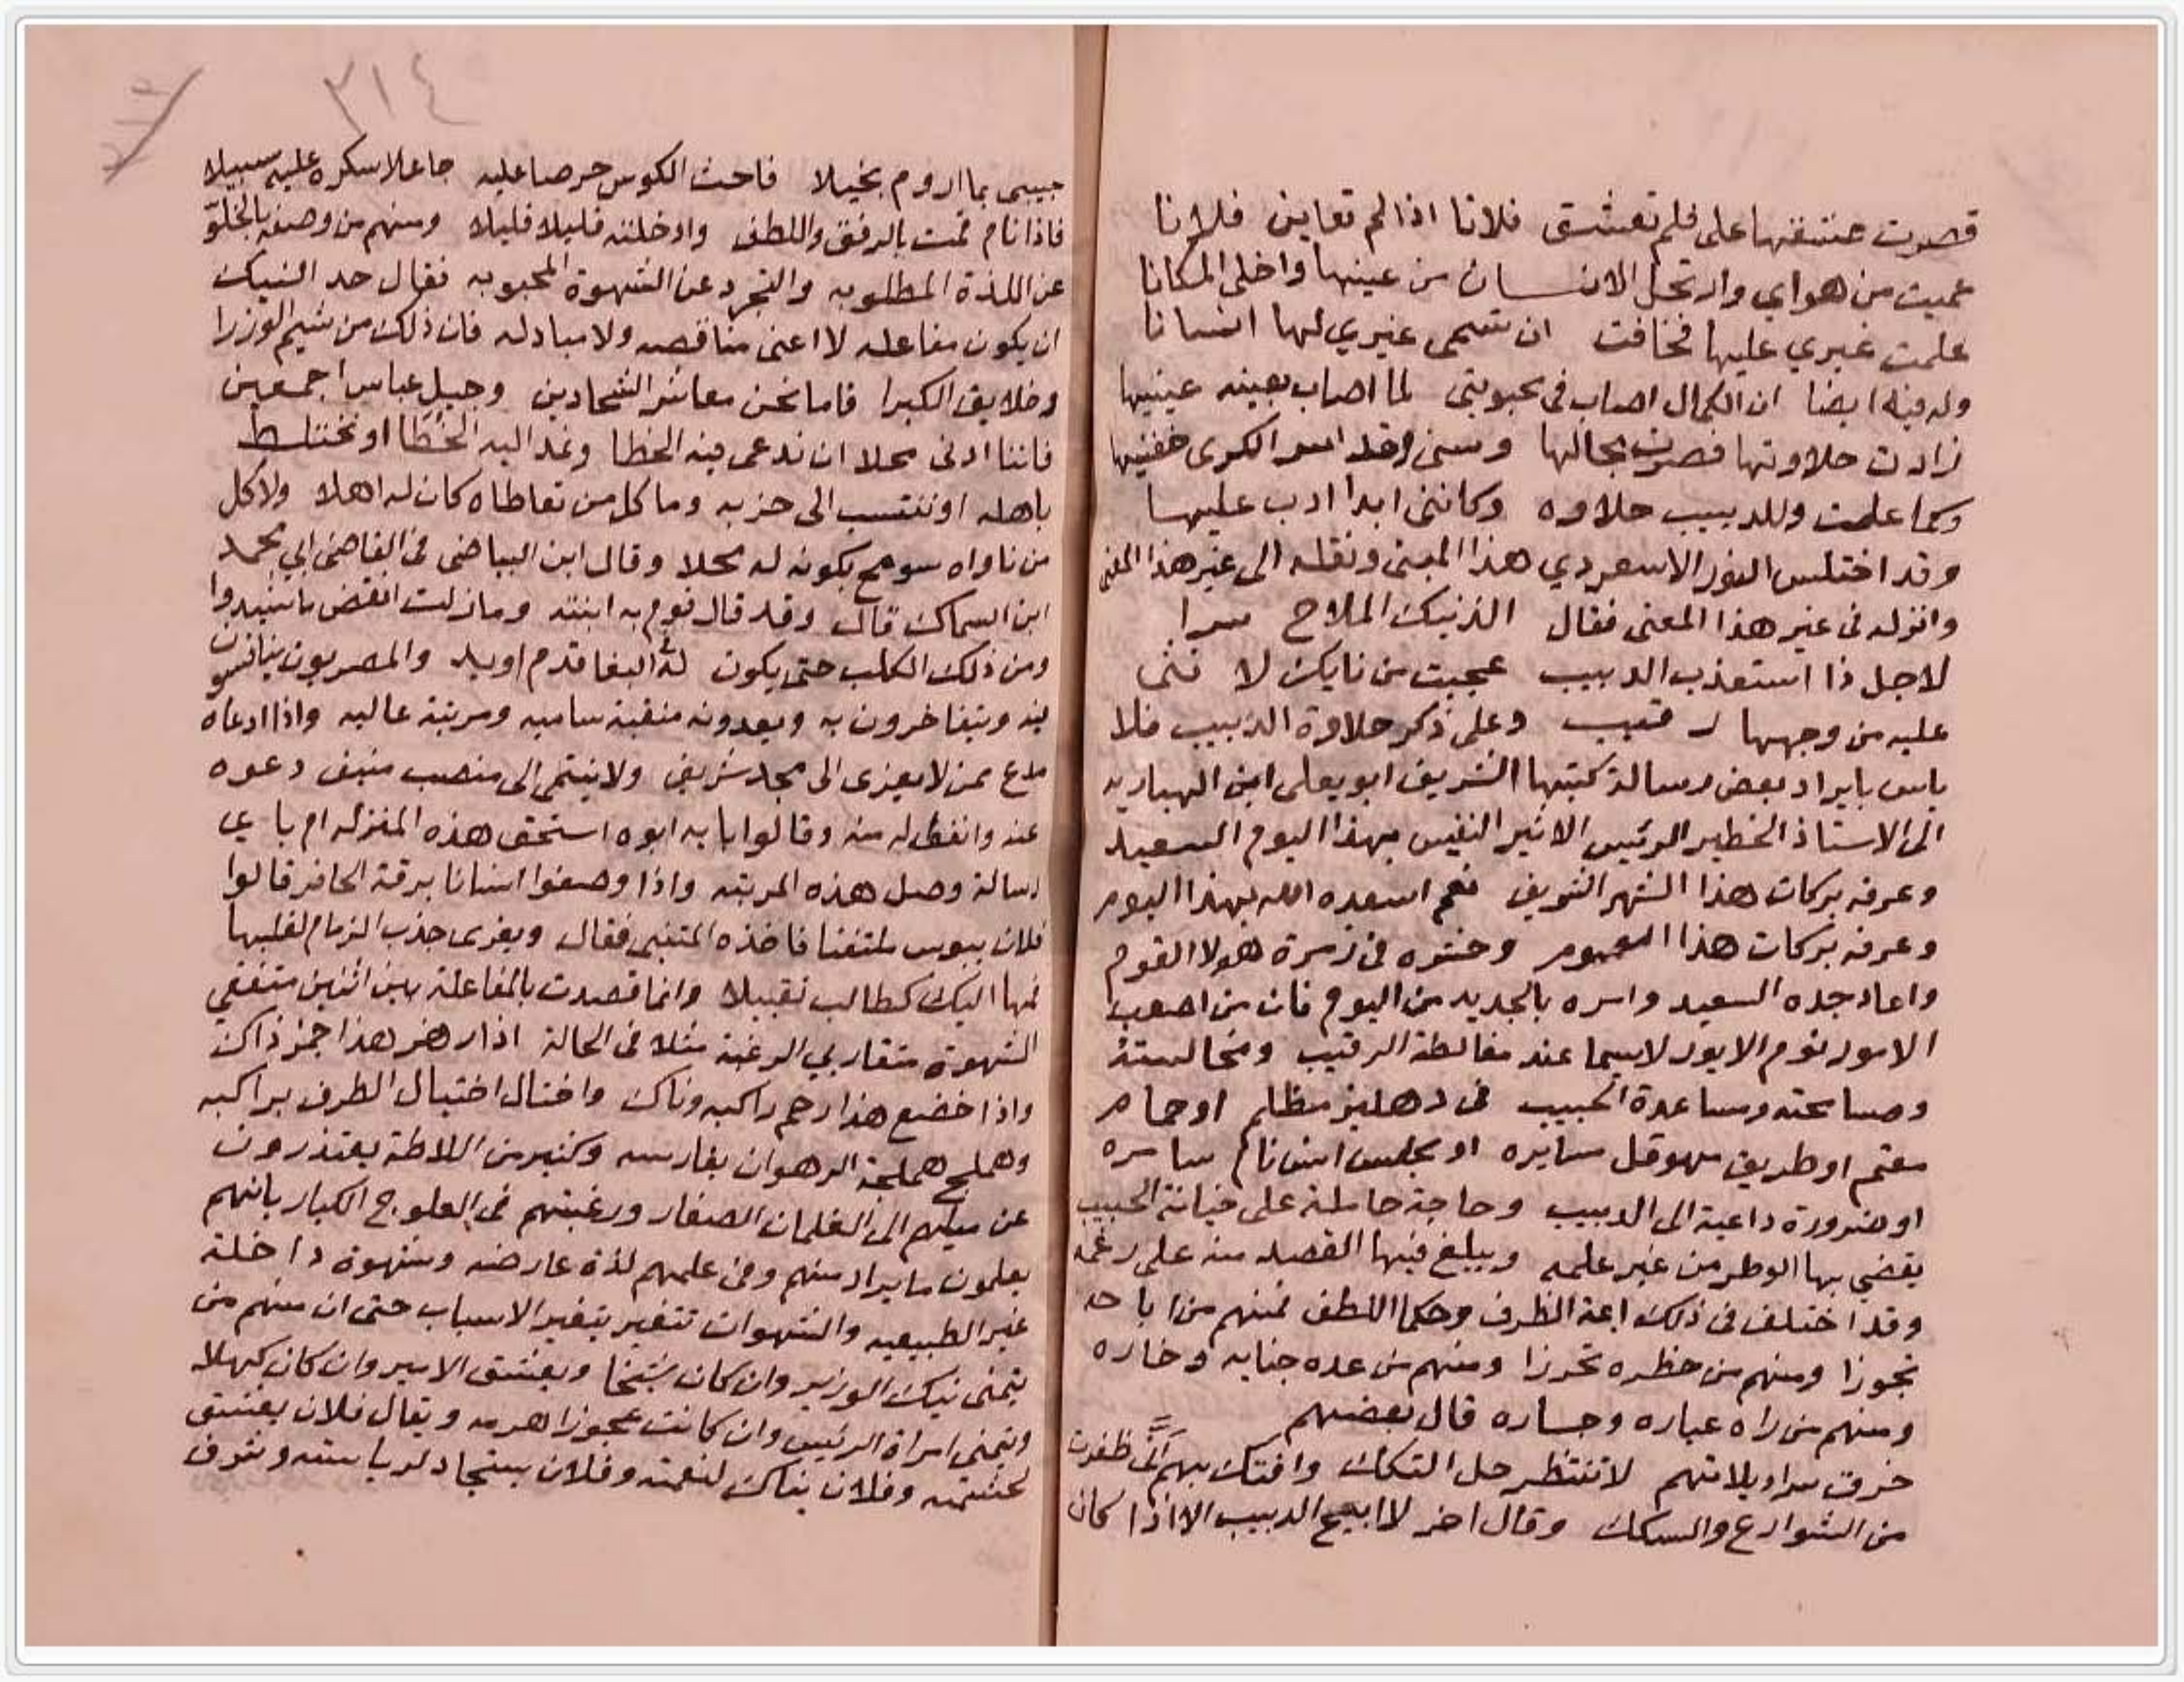 قصرت عشقها علي فلم تعشق فلانا اذا لم تعاين فلانا
عميت من هواي وارتحل الانسان من عينها واخلى المكانا
علمت غيري عليها فخافت ان تسمى غيري لها انسانا
وله فيه ايضا ان الكمال اصاب في محبوبتي لما اصاب بعينه عينيها
زادت حلاوتها فصرت بحالها وسنى وقد اسر الكرى جفنيها
وكما علمت وللدبيب حلاوه وكانني ابدا ادب عليها
وقد اختلس النور الاسعردي هذا المبنى ونقله الى غير هذا المغنى
وانزله في غير هذا المعنى فقال الذ نيك الملاح سرا
لاجل ذا استعذب الدبيب عجبت من نايك لانثى
عليه من وجهها رقيب وعلى ذكر حلاوة الدبيب فلا
باس بايراد بعض رسالة كتبها الشريف ابو يعلى ابن الهباريه
الى الاستاذ الخطير الرئيس الاثير النفيس بهذا اليوم السعيد
وعرفه بركات هذا الشهر الشريف نعم اسعده الله بهذا اليوم
وعرفه بركات هذا وحشره في زمرة هولا القوم
واعاد جده السعيد واسره بالجديد من اليوم فان من اصعب
الامور نوم الايور لاسيما عند مغالطة الرقيب ومخالسته
ومسامحته ومساعدة الحبيب في دهليز مظلم او حمام
معتم او طريق سهو قل سايره او مجلس انس نام سامره
او ضرورة داعية الى الدبيب وحاجة حاملة على خيانة الحبيب
يقضي بها الوطر من غير علمه ويبلغ فيها القصد منه على رغمه
وقد اختلف في ذلك ايمة الظرف وحكما اللطف فمنهم من اباحه
تجوزا ومنهم من حظره تحرزا ومنهم من عده جنايه وخاره
ومنهم من راه عياره وجساره قال بعضهم
خرق سراويلاتهم لا تنتظر حل التكك وافتك بهم انى ظفرت
من الشوارع والسكك وقال اخر لا ابيح الدبيب الا اذا كان
٣١٤
حبيبي بما اروم بخيلا فاحث الكوس حرصا عليه جاعلا سكره عليه سبيلا
فاذا نام قمت بالرفق واللطف وادخلته قليلا قليلا ومنهم من وصفه بالخلو
عن اللذة المطلوبه والتجرد عن الشهوة المحبوبه فقال حد النيك
ان يكون مفاعله لا اعني مناقصه ولا مبادله فان ذلك من شيم الوزرا
وخلايق الكبرا فاما نحن معاشر الشحادين وجيل عباس اجمعين
فاننا ادنى محلا ان ندعى فيه الخطا ونمد اليه الخطا او نختلط
باهله او ننتسب الى حزبه وما كل من تعاطاه كان له اهلا ولا كل
من ناواه سومح بكونه له محلا وقال ابن البياضي في القاضي ابي محمد
ابن السماك قال وقد قال قوم به ابنة وما زلت انقض ما شيدوا
ومن ذلك الكلب حتى يكون له في البغا قدم او يد والمصريون يتنافسون
فيه ويتفاخرون به ويعدونه منقبة ساميه ومرتبة عاليه واذا ادعاه
مدع ممن لا يعزى الى مجد شريف ولا ينتمي الى منصب منيف دعوه
عنه وانفوا له منه وقالوا بايه ابوه استحق هذه المنزله ام باي
رسالة وصل هذه المرتبه واذا وصفوا انسانا برقة الحافر قالوا
فلان يبوس ملتفتا فاخذه المتنبي فقال ويغرى جذب الزمام لقلبها
فمها اليك كطالب تقبيلا وانما قصدت بالمفاعلة بين اثنين متفقي
الشهوة متقاربي الرغبة مثلا في الحالة اذا رهز هذا جمز ذاك
واذا خضع هذا رحم راكبه وناك واختال اختيال الطرف براكبه
وهملج هملجة الرهوان بفارسه وكثير من اللاطة يعتذرون
عن ميلهم الى الغلمان الصغار ورغبتهم في العلوج الكبار بانهم
يعلمون ما يراد منهم وفي علمهم لذة عارضه وشهوة داخلة
غير الطبيعيه والشهوات تتغير بتغير الاسباب حتى ان منهم من
يتمنى نيك الوزير وان كان شيخا ويعشق الامير وان كان كهلا
ويتمنى امراة الرئيس وان كانت عجوزا هرمه ويقال فلان يعشق
لحشمته وفلان يناك لنعمته وفلان يستجاد لرياسته وشرف